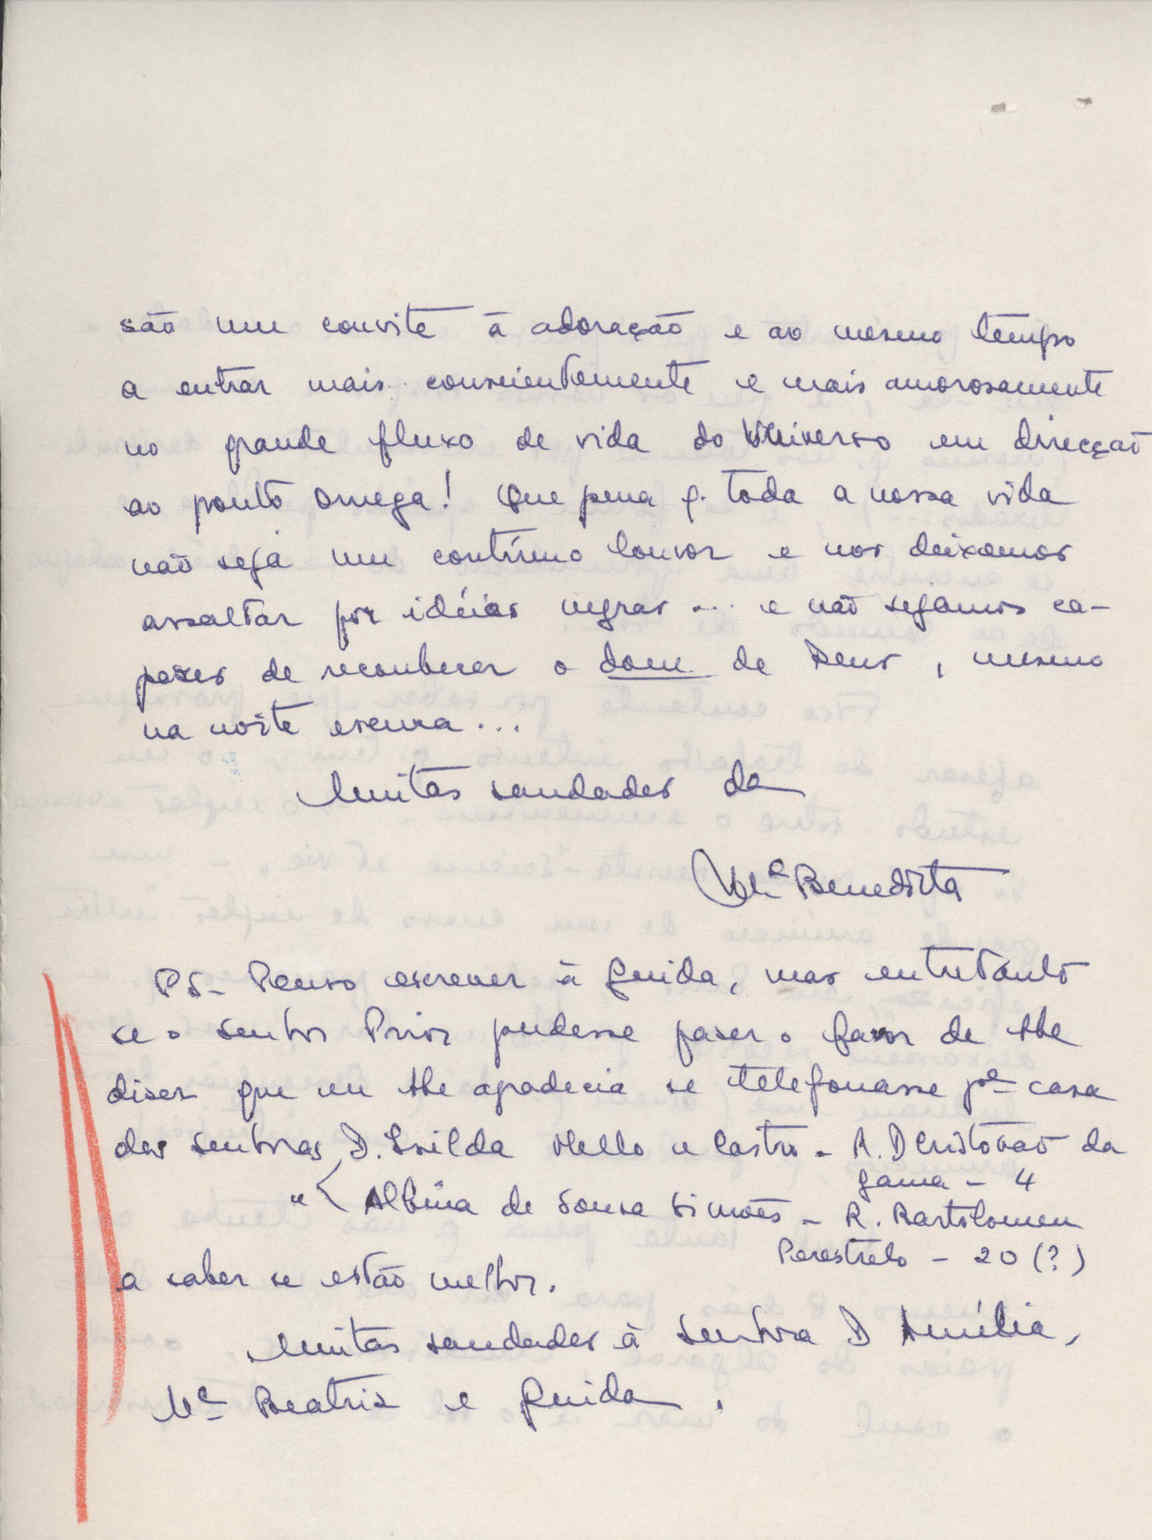 são um convite à adoração e ao mesmo tempo
a entrar mais conscientemente e mais amorosamente
no grande fluxo de vida do Universo em direcção
ao ponto Omega! Que pena q. toda a nossa vida
não seja um contínuo louvor e nos deixamos
assaltar por idéias negras ... e não sejamos ca-
pazes de reconhecer o dom de Deus, mesmo
na noite escura...
Muitas saudades da
Mª Benedita
PS- Penso escrever à Guida, mas entretanto
se o Senhor Prior pudesse fazer o favor de lhe
dizer que eu lhe agradecia se telefonasse pª casa
das senhoras D. Isilda Mello e Castro - R. D Cristovão da
Gama - 4
" Albina de Sousa Simões - R. Bartolomeu
Perestrelo - 20 (?)
a saber se estão melhor.
Muitas saudades à Senhora D Amélia,
Mª Beatriz e Guida.